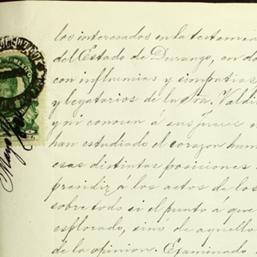 los interesados en la testamen
del Estado de Durango, en do
con influencias y simpatias
y legatarios de la Sra. Valdi
y ni conocen á sus jueces
han estudiado el corazon hum
esas distintas posiciones
prendirá los actos de los
sobre todo si el punto á que
esplorado, sino de aquello
de la opinion. Examinado